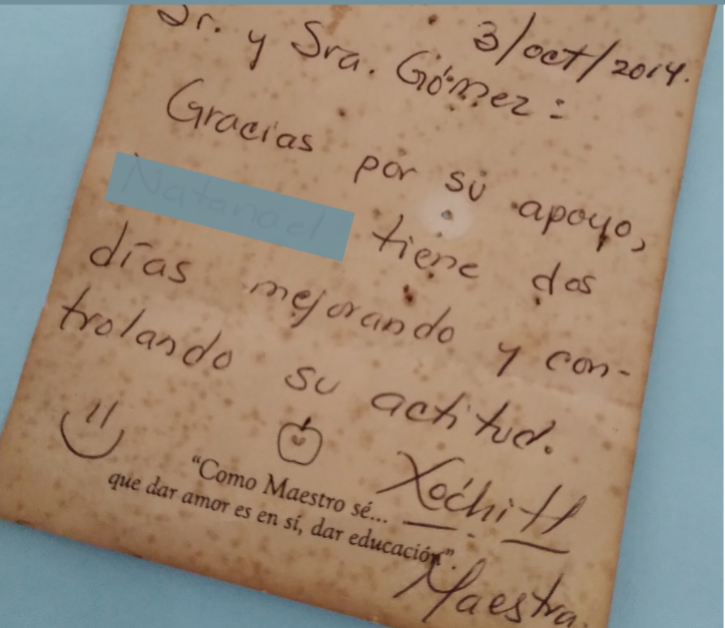 3/oct/2014.
Sr. y Sra. Gómez:
Gracias por su apoyo,
tiene dos
días mejorando y con-
trolando su actitud.
"Como Maestro sé...
que dar amor es en sí, dar educación".
Xóchitl
Maestra.